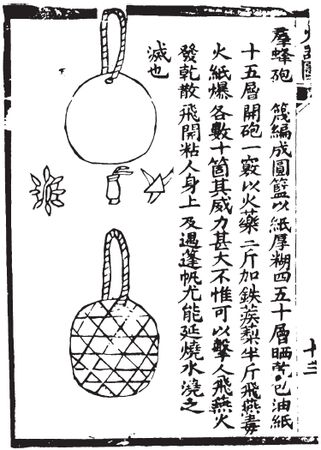 羣蜂砲　篾編成圓籃以紙厚糊四五十層晒乾已油紙
十五層開砲一竅以火藥二斤加鉄蒺梨半斤飛燕毒
火紙爆各數十箇其威力甚大不惟可以擊人飛燕火
發乾散飛開粘人身上及遇蓬帆尤能延燒水澆之
滅也
十三